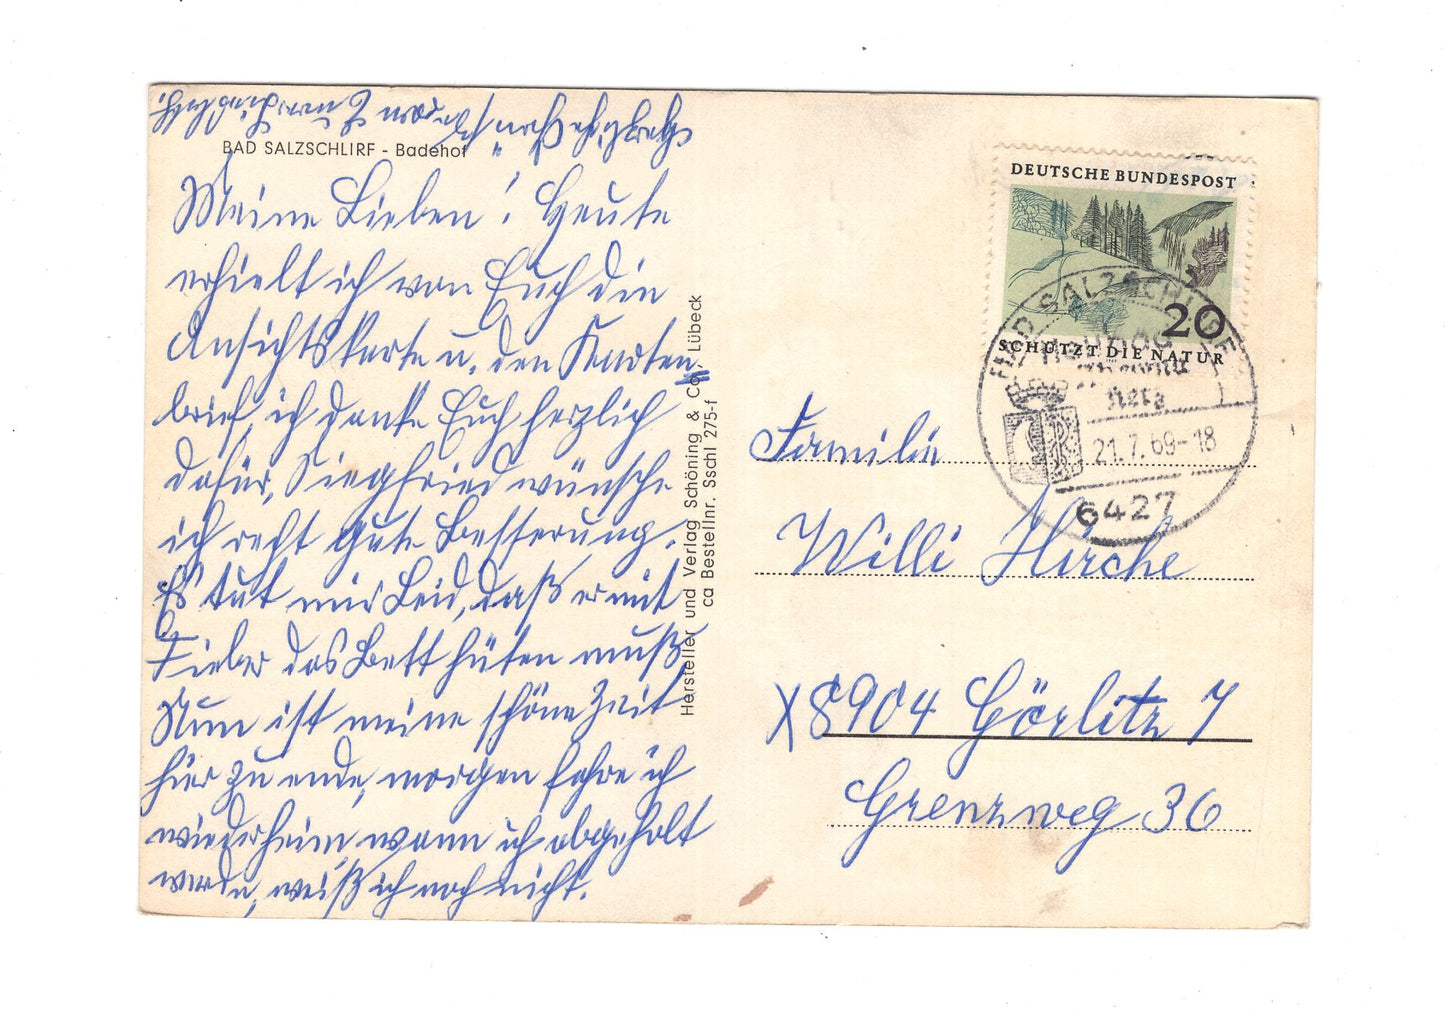 BAD SALZSCHLIRF - Badehof
Meine Lieben! Heute
erhielt ich von Euch die
Ansichtskarte u. den Karten
brief, ich danke Euch herzlich
dafür, Siegfried wünsche
ich recht gute Besserung.
Es tut mir Leid, daß er mit
Fieber das Bett hüten muß
Nun ist meine schöne Zeit
hier zu ende, morgen fahre ich
wiederheim wann ich abgeholt
werde, weiß ich noch nicht.
Herzliche Grüße
Hersteller und Verlag Schöning & Co., Lübeck
ca Bestellnr. Sschl 275-f
DEUTSCHE BUNDESPOST
20
SCHÜTZT DIE NATUR
BAD SALZSCHLIRF
21.7.69-18
6427
Familie
Willi Hirche
X8904 Görlitz 7
Grenzweg 36